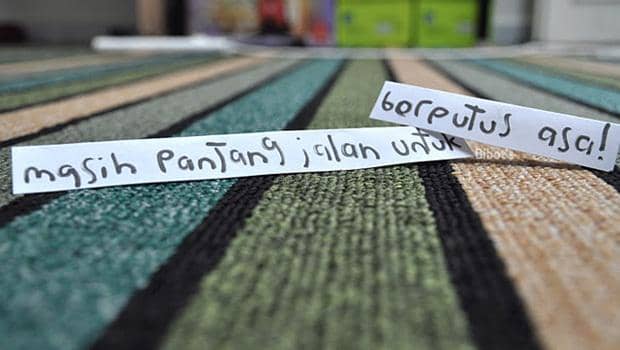 masih pantang jalan untuk
berputus asa!